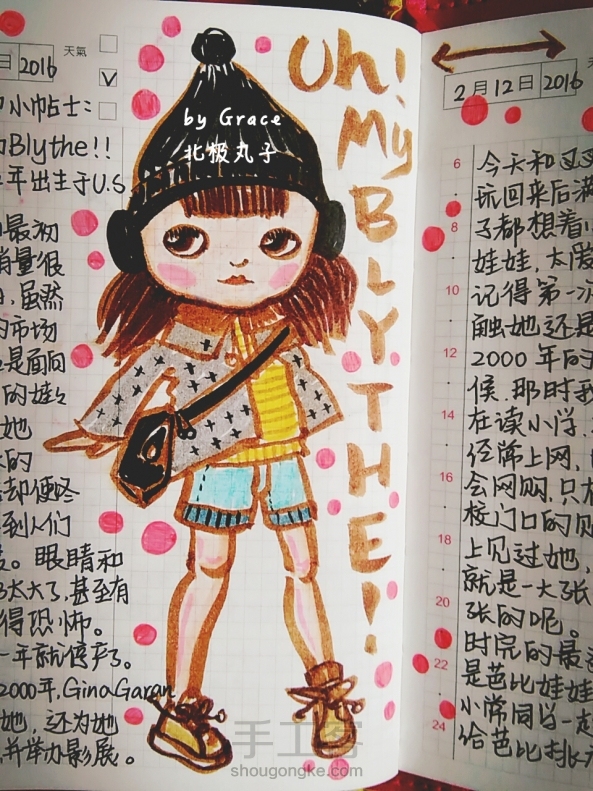 2016
天氣
小帖士:
Blythe!!
年出生于U.S
最初
销量很
,虽然
的市场
是面向
的娃々
她
的
却便咚
到人们
。眼睛和
太大了,甚至有
得恐怖。
一年就停产了。
2000年,GinaGaran
她,还为她
并举办影展。
by Grace
北极丸子
Oh!
My
BLYTHE!
2月12日2016
6
8
10
12
14
16
18
20
22
24
今天和
玩回来后满
了都想着
娃娃,太爱
记得第一次
触她还是
2000年的
候.那时我
在读小学,
经常上网,
会网购,只
校门口的贝
上见过她,
就是一大张
张的呢。
时玩的最
是芭比娃娃
小常同学一起
给芭比
手工客
shougongke.com